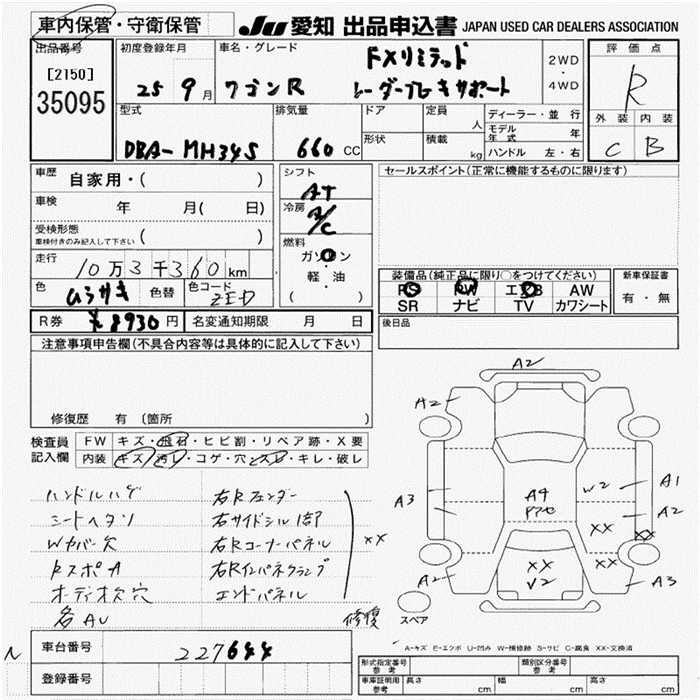 車内保管・守衛保管 JU 愛知 出品申込書 JAPAN USED CAR DEALERS ASSOCIATION
出品番号 初度登録年月 車名・グレード 評価点
[2150] FXリミテッド 2WD
35095 25 9月 ワゴンR レーダーブレーキサポート ・ 4WD R
型式 排気量 ドア 定員 人 ディーラー・並行 外装 内装
モデル年式 年
DBA-MH34S 660 CC 形状 積載 kg ハンドル 左・右 C B
車歴 自家用・( ) シフト AT セールスポイント(正常に機能するものに限ります)
車検 年 月( 日) 冷房 A/C
受検形態 ( )
車検付きのみ記入して下さい
燃料
走行 10万3千360km ガソリン
軽・油
( )
装備品(純正品に限り○をつけてください) 新車保証書
色 ムラサキ 色替 色コード ZED PS PW エアB AW 有・無
SR ナビ TV カワシート
R券 ¥8930円 名変通知期限 月 日 後日品
注意事項申告欄(不具合内容等は具体的に記入して下さい)
修復歴 有 〔箇所
検査員 FW キズ・飛石・ヒビ割・リペア跡・X要
記入欄 内装 キズ・汚レ・コゲ・穴・スレ・キレ・破レ
ハンドルハゲ 右Rフェンダー
シートヘタリ 右サイドシル1部
Wカバー欠 右Rコーナーパネル XX
RスポA 右Rインパネクランプ
オーディオ欠穴 エンドパネル
各AU 修復
A2
A2
A3 A4 W2 A1
PアセA2
XX XX
XX XX
A2 V2 A3
スペア
A-キズ E-エクボ U-凹み W-補修跡 S-サビ C-腐食 XX-交換済
N 車台番号 227644
登録番号
形式指定番号 参考 類別区分番号 参考
車庫証明用 参考 長さ cm 幅 cm 高さ cm